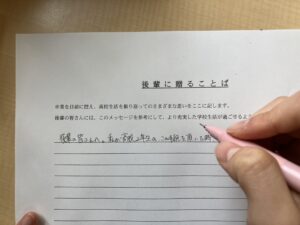 後輩に贈ることば
卒業を目前に控え、高校生活を振り返ってのさまざまな思いをここに記します。
後輩の皆さんには、このメッセージを参考にして、より充実した学校生活が過ごせるよう
後輩の皆さんへ。私が高校